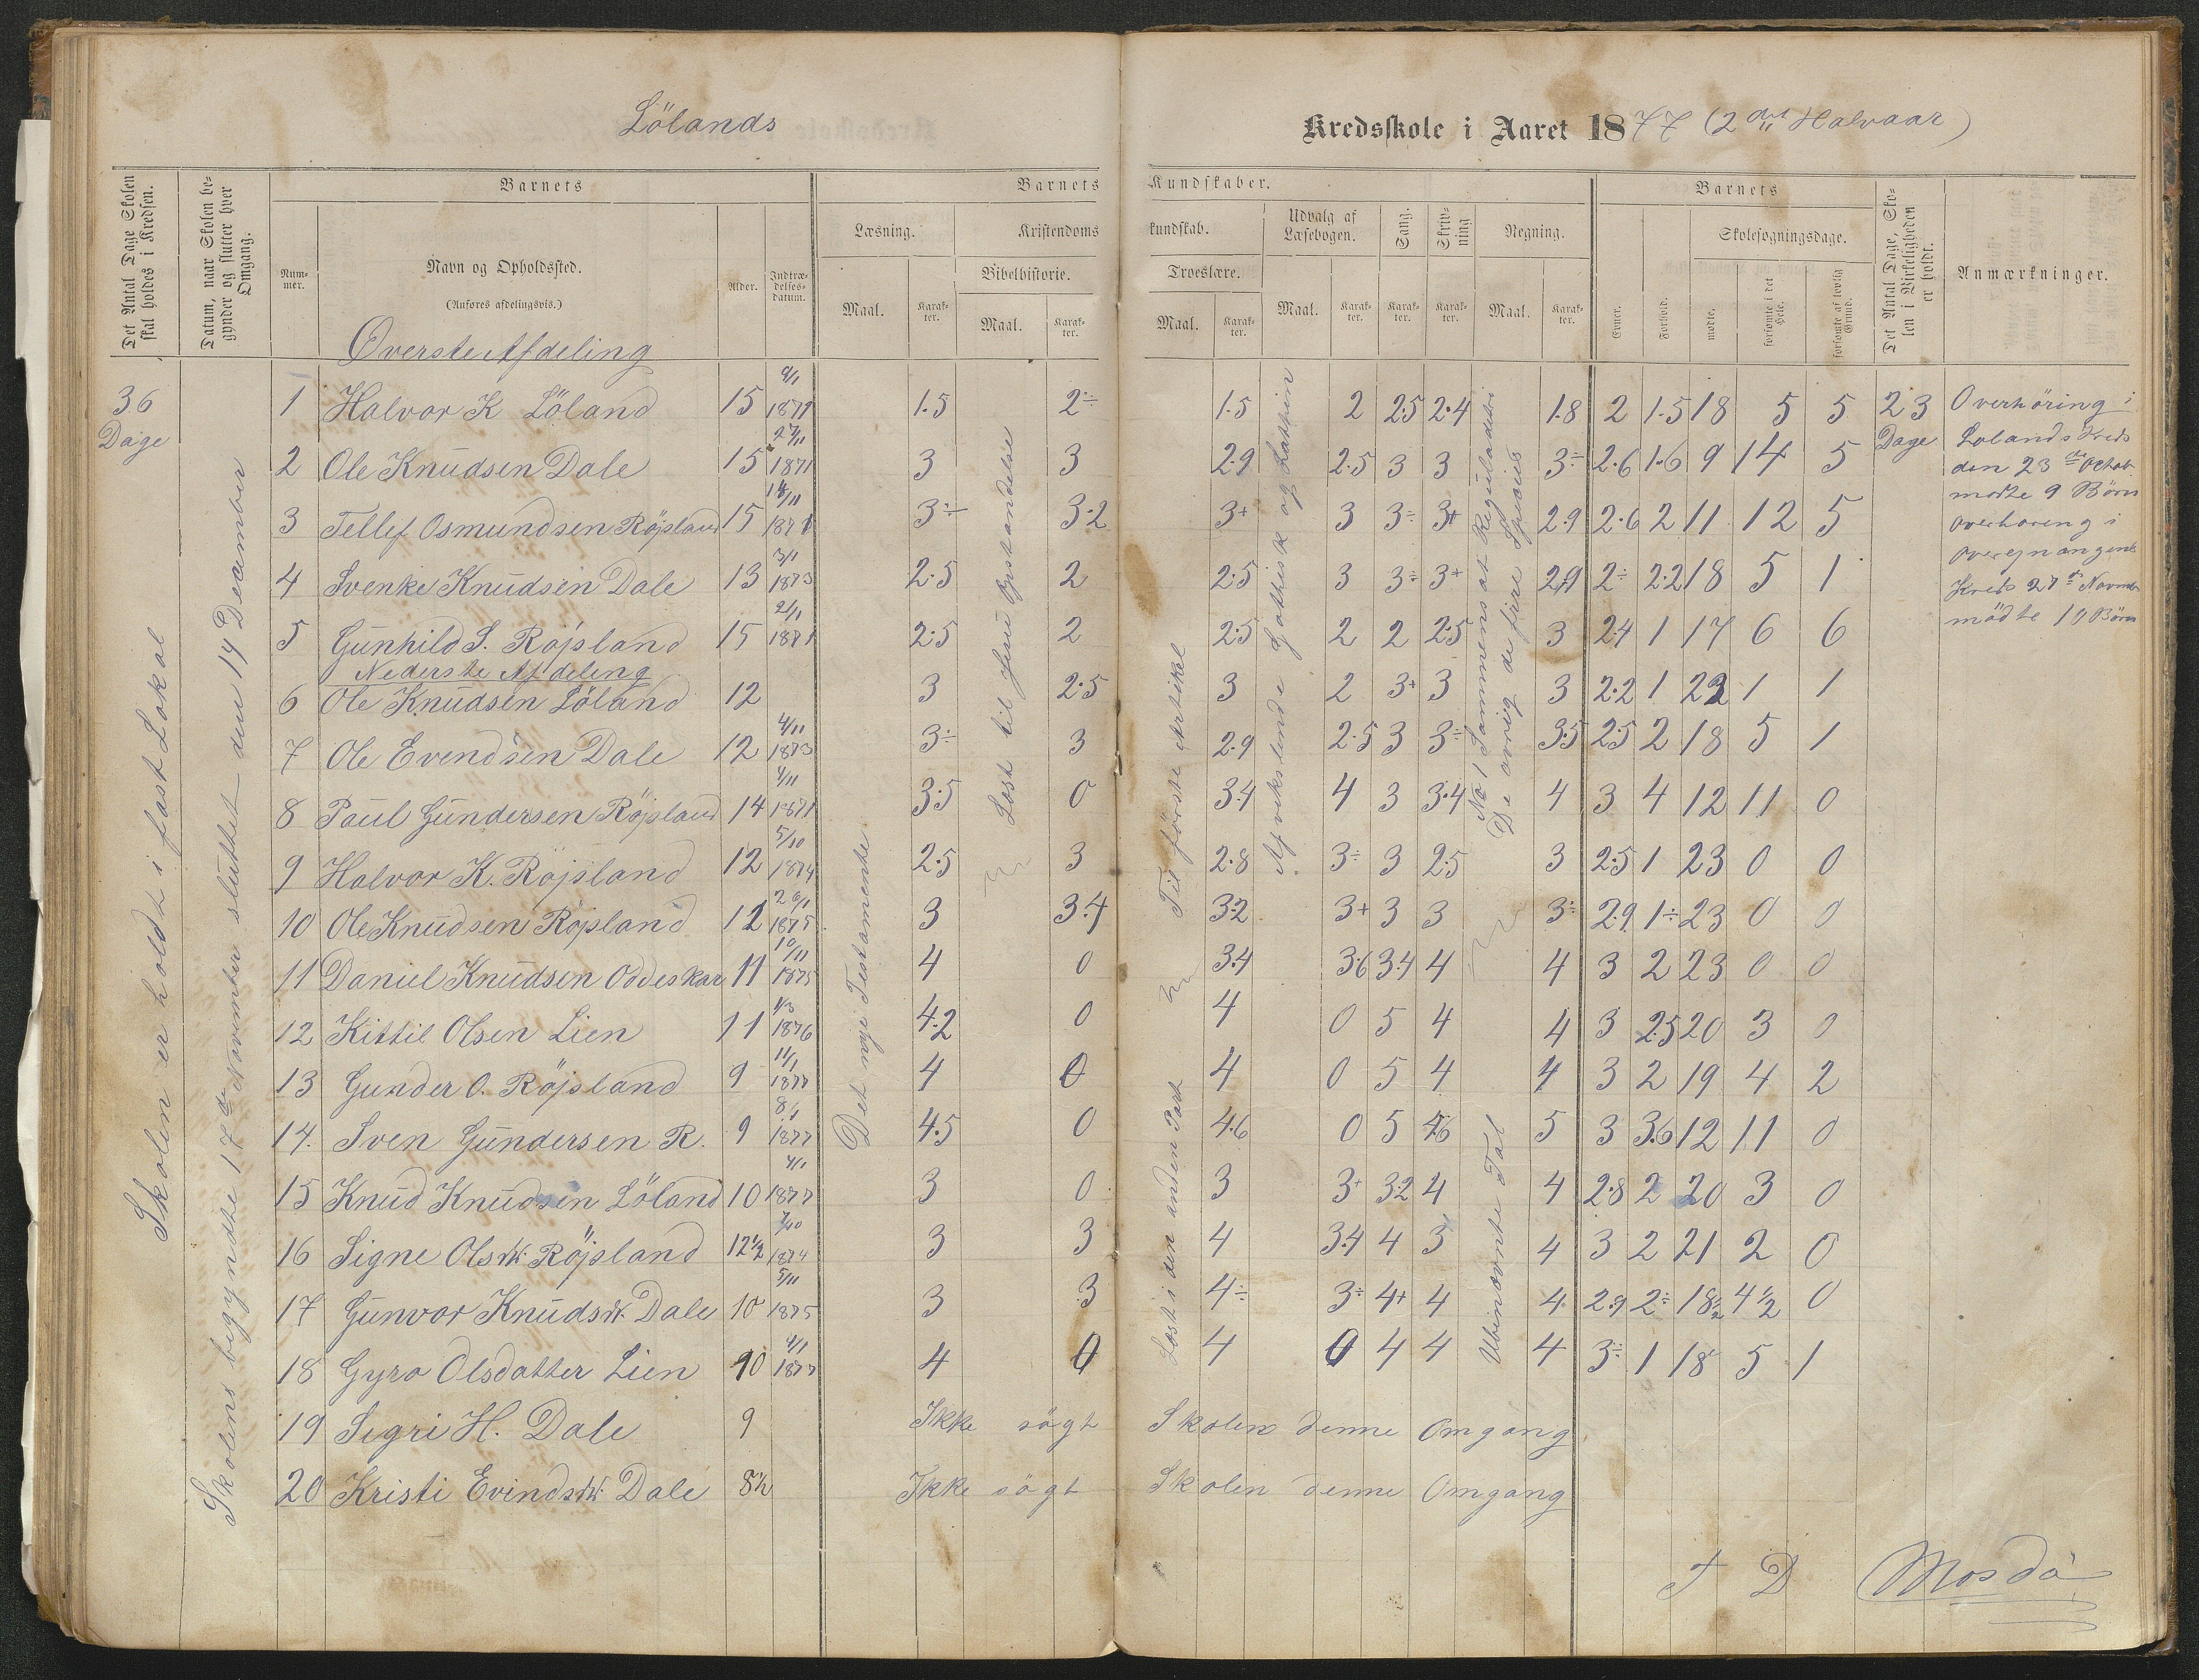 Lölands
Kredsskole i Aaret 1877 (2det Halvaar)
Det Antal Dage Skolen skal holdes i Kredsen.
Datum, naar Skolen begynder og slutter hver Omgang.
Barnets
Nummer.
Navn og Opholdssted.
(Anføres afdelingsvis.)
Alder.
Indtrædelsesdatum.
Barnets Kundskaber.
Læsning.
Maal.
Karakter.
Kristendomskundskab.
Bibelhistorie.
Maal.
Karakter.
Troeslære.
Maal.
Karakter.
Udvalg af Læsebogen.
Maal.
Karakter.
Sang.
Karakter.
Skrivning
Karakter.
Regning.
Maal.
Karakter.
Barnets
Evner.
Forhold.
Skolesøgningsdage.
mødte.
forsømte i det Hele.
forsømte af lovlig Grund.
Det Antal Dage, Skolen i Virkeligheden er holdt.
Anmærkninger.
36 Dage
Skolen er holdt i fast Lokal
Skolens begyndte 17de November sluttet den 14 December
Det nye Testamente
Læst til Jesu Opstandelse
Til förste Artikel
Læst i den anden Part
Afvekslende Gothisk og Lathin
No 1 Sammensat Reguladetri
De ovrig de fire Speties
Ubenævnte Tal
Överste Afdeling
1 Halvor K Löland 15 1871 1.5 2÷ 1.5 2 2.5 2.4 1.8 2 1.5 18 5 5 23 Dage
2 Ole Knudsen Dale 15 27/11 1871 3 3 2.9 2.5 3 3 3÷ 2.6 1.6 9 14 5
3 Tellef Osmundsen Röjsland 15 14/11 1871 3÷ 3.2 3+ 3 3÷ 3+ 2.9 2.6 2 11 12 5
4 Svenke Knudsen Dale 13 3/11 1873 2.5 2 2.5 3 3÷ 3+ 2.9 2÷ 2.2 18 5 1
5 Gunhild S. Röjsland 15 21/11 1871 2.5 2 2.5 2 2 2.5 3 2.4 1 17 6 6
Nederste Afdeling
6 Ole Knudsen Löland 12 3 2.5 3 2 3+ 3 3 2.2 1 22 1 1
7 Ole Evendsen Dale 12 4/11 1873 3÷ 3 2.9 2.5 3 3÷ 3.5 2.5 2 18 5 1
8 Paul Gundersen Röjsland 14 4/11 1871 3.5 0 3.4 4 3 3.4 4 3 4 12 11 0
9 Halvor K. Röjsland 12 5/10 1874 2.5 3 2.8 3÷ 3 2.5 3 2.5 1 23 0 0
10 Ole Knudsen Röjsland 12 20/1 1875 3 3.4 3.2 3+ 3 3 3÷ 2.9 1÷ 23 0 0
11 Daniel Knudsen Oddeskar 11 10/11 1875 4 0 3.4 3.6 3.4 4 4 3 2 23 0 0
12 Kittil Olsen Lien 11 1/3 1876 4.2 0 4 0 5 4 4 3 2.5 20 3 0
13 Gunder O. Röjsland 9 11/1 1877 4 0 4 0 5 4 4 3 2 19 4 2
14. Sven Gundersen R. 9 8/1 1877 4.5 0 4.6 0 5 4.6 5 3 3.6 12 11 0
15 Knud Knudsen Löland 10 4/1 1877 3 0 3 3+ 3.2 4 4 2.8 2 20 3 0
16 Signe Olsdtr. Röjsland 12 1/2 7/10 1874 3 3 4 3.4 4 3 4 3 2 21 2 0
17 Gunvor Knudsdtr. Dale 10 5/11 1875 3 3 4÷ 3÷ 4+ 4 4 2.9 2÷ 18 1/2 4 1/2 0
18 Gyro Olsdatter Lien 10 4/1 1877 4 0 4 0 4 4 4 3÷ 1 18 5 1
19 Segri H. Dale 9 Ikke sögt Skolen denne Omgang
20 Kristi Evindsdtr. Dale 8 1/2 Ikke sögt Skolen denne Omgang
Overhöring i
Lolands Kreds
den 23de Octob
mödte 9 Börn
overhoring i
Kreds 27de Novmbr
mödte 10 Börn
T D Mosdö